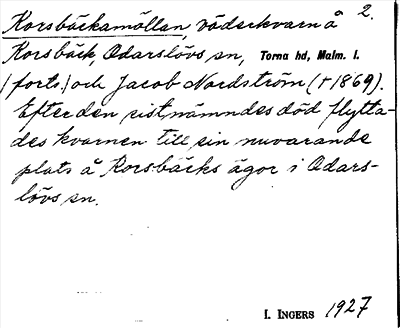 Korsbäckamöllan, väderkvarn å 2.
Korsbäck, Odarslövs sn, Torna hd, Malm. l.
/forts./ och Jacob Nordström (†1869).
Efter den sistnämndes död flytta-
des kvarnen till sin nuvarande
plats å Korsbäcks ägor i Odars-
lövs sn.
I. INGERS 1927